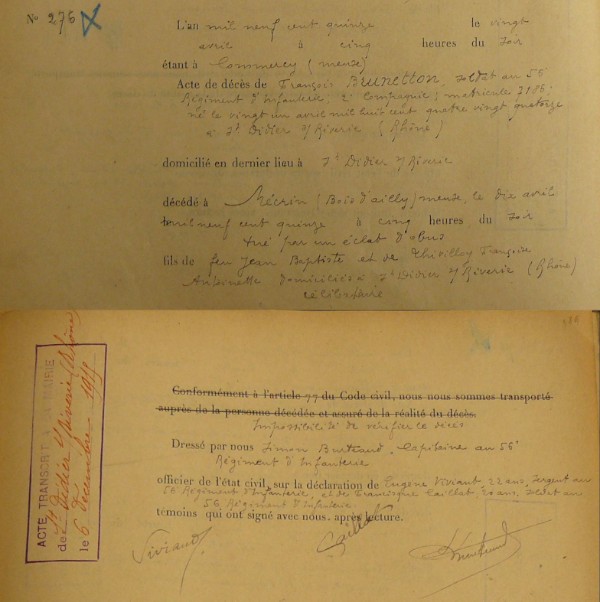 No 276
L'an mil neuf cent quinze le vingt
avril à cinq heures du soir
étant à Commercy (meuse)
Acte de décès de François Brunetton, soldat au 56
Régiment d'Infanterie, 2e Compagnie; matricule 7186;
né le vingt un avril mil huit cent quatre vingt quatorze
à St Didier s/Riverie (Rhône)
domicilié en dernier lieu à St Didier s/Riverie
décédé à Mécrin (Bois d'ailly) meuse, le dix avril
mil neuf cent quinze à cinq heures du soir
tué par un éclat d'obus
fils de feu Jean Baptiste et de Thivilloy Françoise
Antoinette domiciliés à St Didier s/Riverie (Rhône)
célibataire
Conformément à l'article 77 du Code civil, nous nous sommes transporté
auprès de la personne décédée et assuré de la réalité du décès.
Impossibilité de vérifier le décès
Dressé par nous Simon Burtraud, Capitaine au 56e
Régiment d'Infanterie
officier de l'état civil, sur la déclaration de Eugène Viviant 22 ans, sergent au
56 Régiment d'Infanterie, et de Francisque Caillat, 20 ans, soldat au
56 Régiment d'infanterie
témoins qui ont signé avec nous, après lecture.
ACTE TRANSCRIT A LA MAIRIE
de St Didier s/Riverie (Rhône)
le 6 décembre 1917